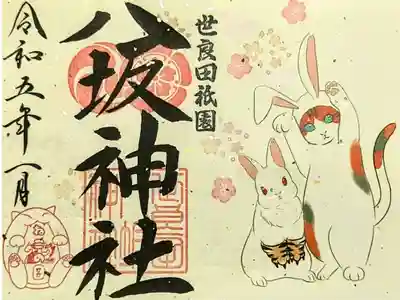 世良田祇園
八坂神社
令和五年一月